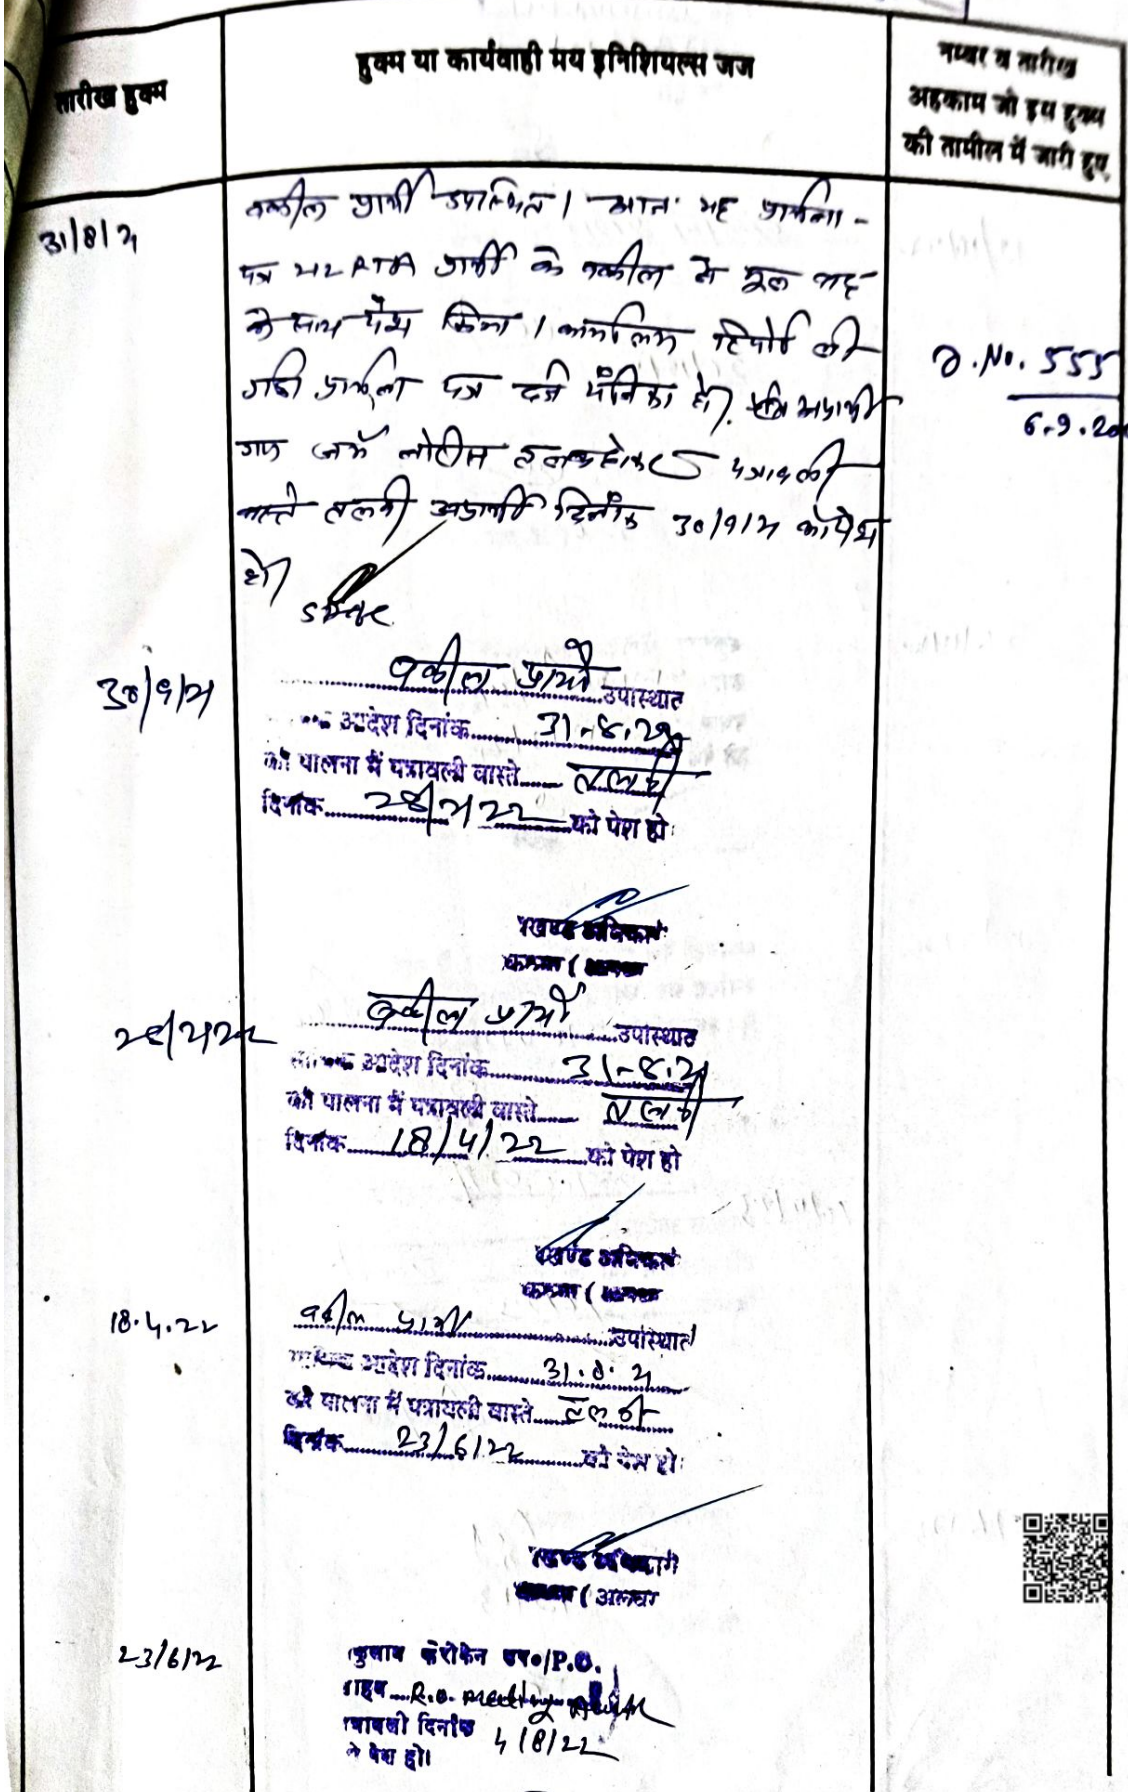 तारीख हुक्म
हुक्म या कार्यवाही मय इनिशियल्स जज
नम्बर व तारीख
अहकाम जो इस हुक्म
की तामील में जारी हुए
31/8/21
वकील प्रार्थी उपस्थित। आज यह प्रार्थना-
पत्र 212 RTA प्रार्थी के वकील ने मूल वाद
के साथ पेश किया। कार्यालय रिपोर्ट ली
गई प्रार्थना पत्र दर्ज पंजिका हो। अप्रार्थी
गण जर्ये नोटिस तलब हो पत्रावली
वास्ते तलबी अप्रार्थी दिनांक 30/9/21 को पेश
हो।
No. 555
6.9.20
30/9/21
वकील प्रार्थी उपस्थित
आदेश दिनांक 31.8.21
की पालना में पत्रावली वास्ते तलबी
दिनांक 28/2/22 को पेश हो
28/2/22
वकील प्रार्थी उपस्थित
आदेश दिनांक 31-8.21
की पालना में पत्रावली वास्ते तलबी
दिनांक 18/4/22 को पेश हो
18.4.22
वकील प्रार्थी उपस्थित
आदेश दिनांक 31.8.21
की पालना में पत्रावली वास्ते तलबी
दिनांक 23/6/22 को पेश हो
अलवर
23/6/22
P.O.
R.O. meeting
दिनांक 4/8/22
पेश हो।